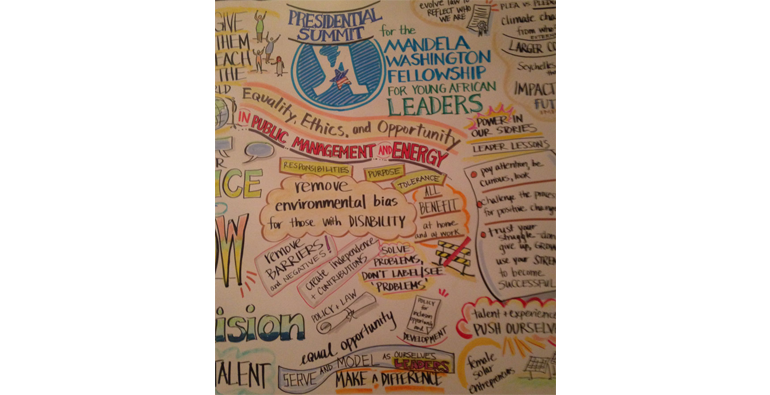 GIVE
THEM
EACH
THE
PRESIDENTIAL
SUMMIT
for the
MANDELA
WASHINGTON
FELLOWSHIP
FOR YOUNG AFRICAN
LEADERS
Equality, Ethics, and Opportunity
IN PUBLIC MANAGEMENT AND ENERGY
evolve law to
REFLECT WHO
WE ARE
climate cha
from who
LARGER CO
Seychelles
IMPACT
FUT
POWER IN
OUR STORIES
LEADER LESSONS
pay attention, be
curious, look
challenge the proces
for positive change
trust your
struggle - don
give up, GROW
use your STREN
to become
SUCCESSFUL
RESPONSIBILITIES
PURPOSE
TOLERANCE
remove
environmental bias
for those with DISABILITY
ALL
BENEFIT
at home
and in work
remove
BARRIERS!
and NEGATIVES!
create independence
+ CONTRIBUTIONS
SOLVE
PROBLEMS,
DON'T LABEL/SEE
'PROBLEMS'
POLICY + LAW
POLICY
for
inclusion
DEVELOPMENT
equal opportunity
SERVE and MODEL AS OURSELVES
LEADERS
MAKE A DIFFERENCE
talent + experience
PUSH OURSELVE
female
solar
entrepreneurs
ICE
OW
ision
TALENT